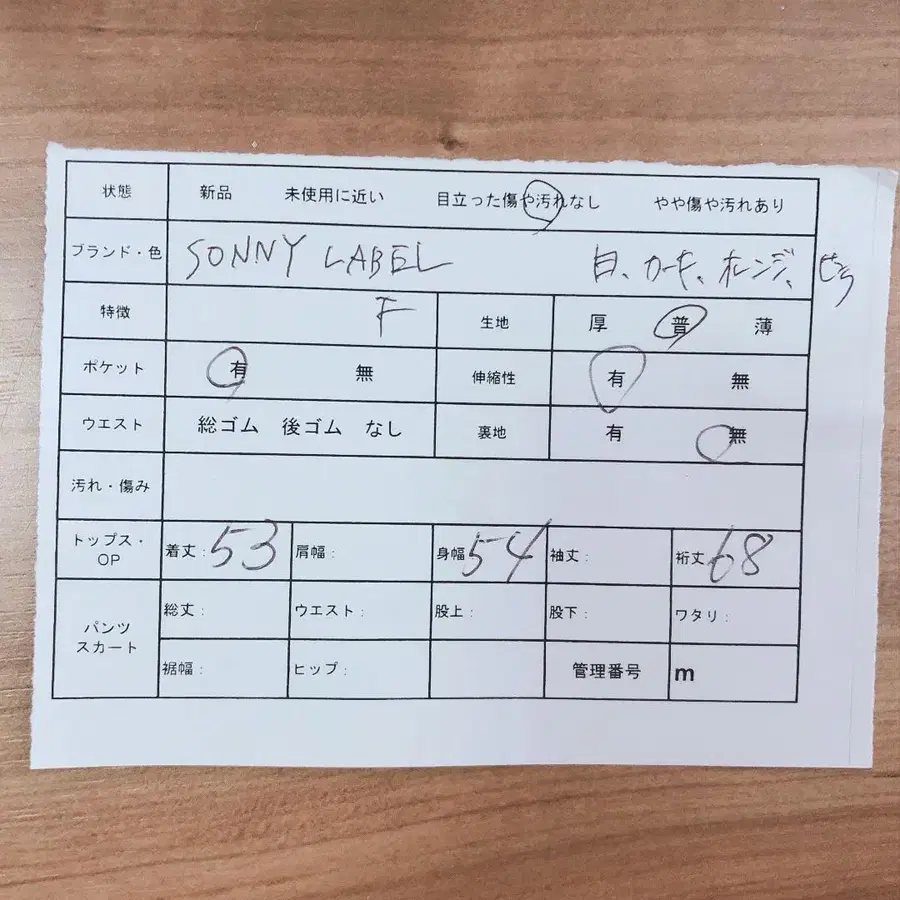 状態 新品 未使用に近い 目立った傷や汚れなし やや傷や汚れあり
ブランド・色 SONNY LABEL 白、カーキ、オレンジ、
特徴 F 生地 厚 普 薄
ポケット 有 無 伸縮性 有 無
ウエスト 総ゴム 後ゴム なし 裏地 有 無
汚れ・傷み
トップス・OP 着丈: 53 肩幅: 身幅: 54 袖丈: 裄丈 68
パンツ スカート 総丈: ウエスト: 股上: 股下: ワタリ:
裾幅: ヒップ: 管理番号 m